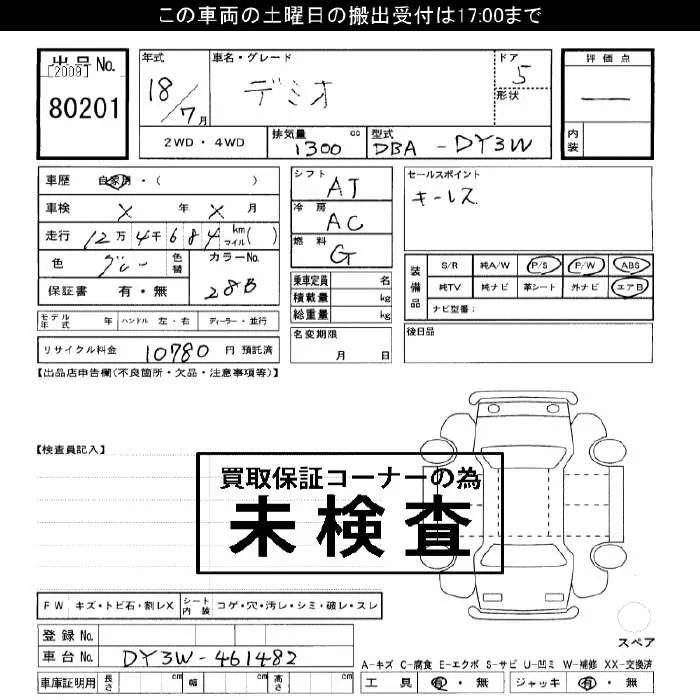 この車両の土曜日の搬出受付は17:00まで
出品No.
[2009]
80201
年式
18/7月
車名・グレード
デミオ
ドア
5
形状
評価点
―
内装
2WD・4WD
排気量
1300 cc
型式
DBA-DY3W
車歴 自家用・( )
車検 X 年 X 月
走行 12万4千684 km マイル( )
色 グレー 色替
カラーNo. 28B
保証書 有・無
シフト AT
冷房 AC
燃料 G
乗車定員 名
積載量 kg
総重量 kg
セールスポイント
キーレス
装備品
S/R 純A/W P/S P/W ABS
純TV 純ナビ 革シート 外ナビ エアB
ナビ型番:
モデル年式 年 ハンドル 左・右 ディーラー・並行
リサイクル料金 10780 円 預託済
名変期限
月 日
後日品
【出品店申告欄(不良箇所・欠品・注意事項等)】
【検査員記入】
買取保証コーナーの為
未検査
FW キズ・トビ石・割レX シート内装 コゲ・穴・汚レ・シミ・破レ・スレ
登録No.
車台No. DY3W-461482
スペア
A-キズ C-腐食 E-エクボ S-サビ U-凹ミ W-補修 XX-交換済
車庫証明用 長さ cm 幅 cm 高さ cm
工具 有・無 ジャッキ 有・無